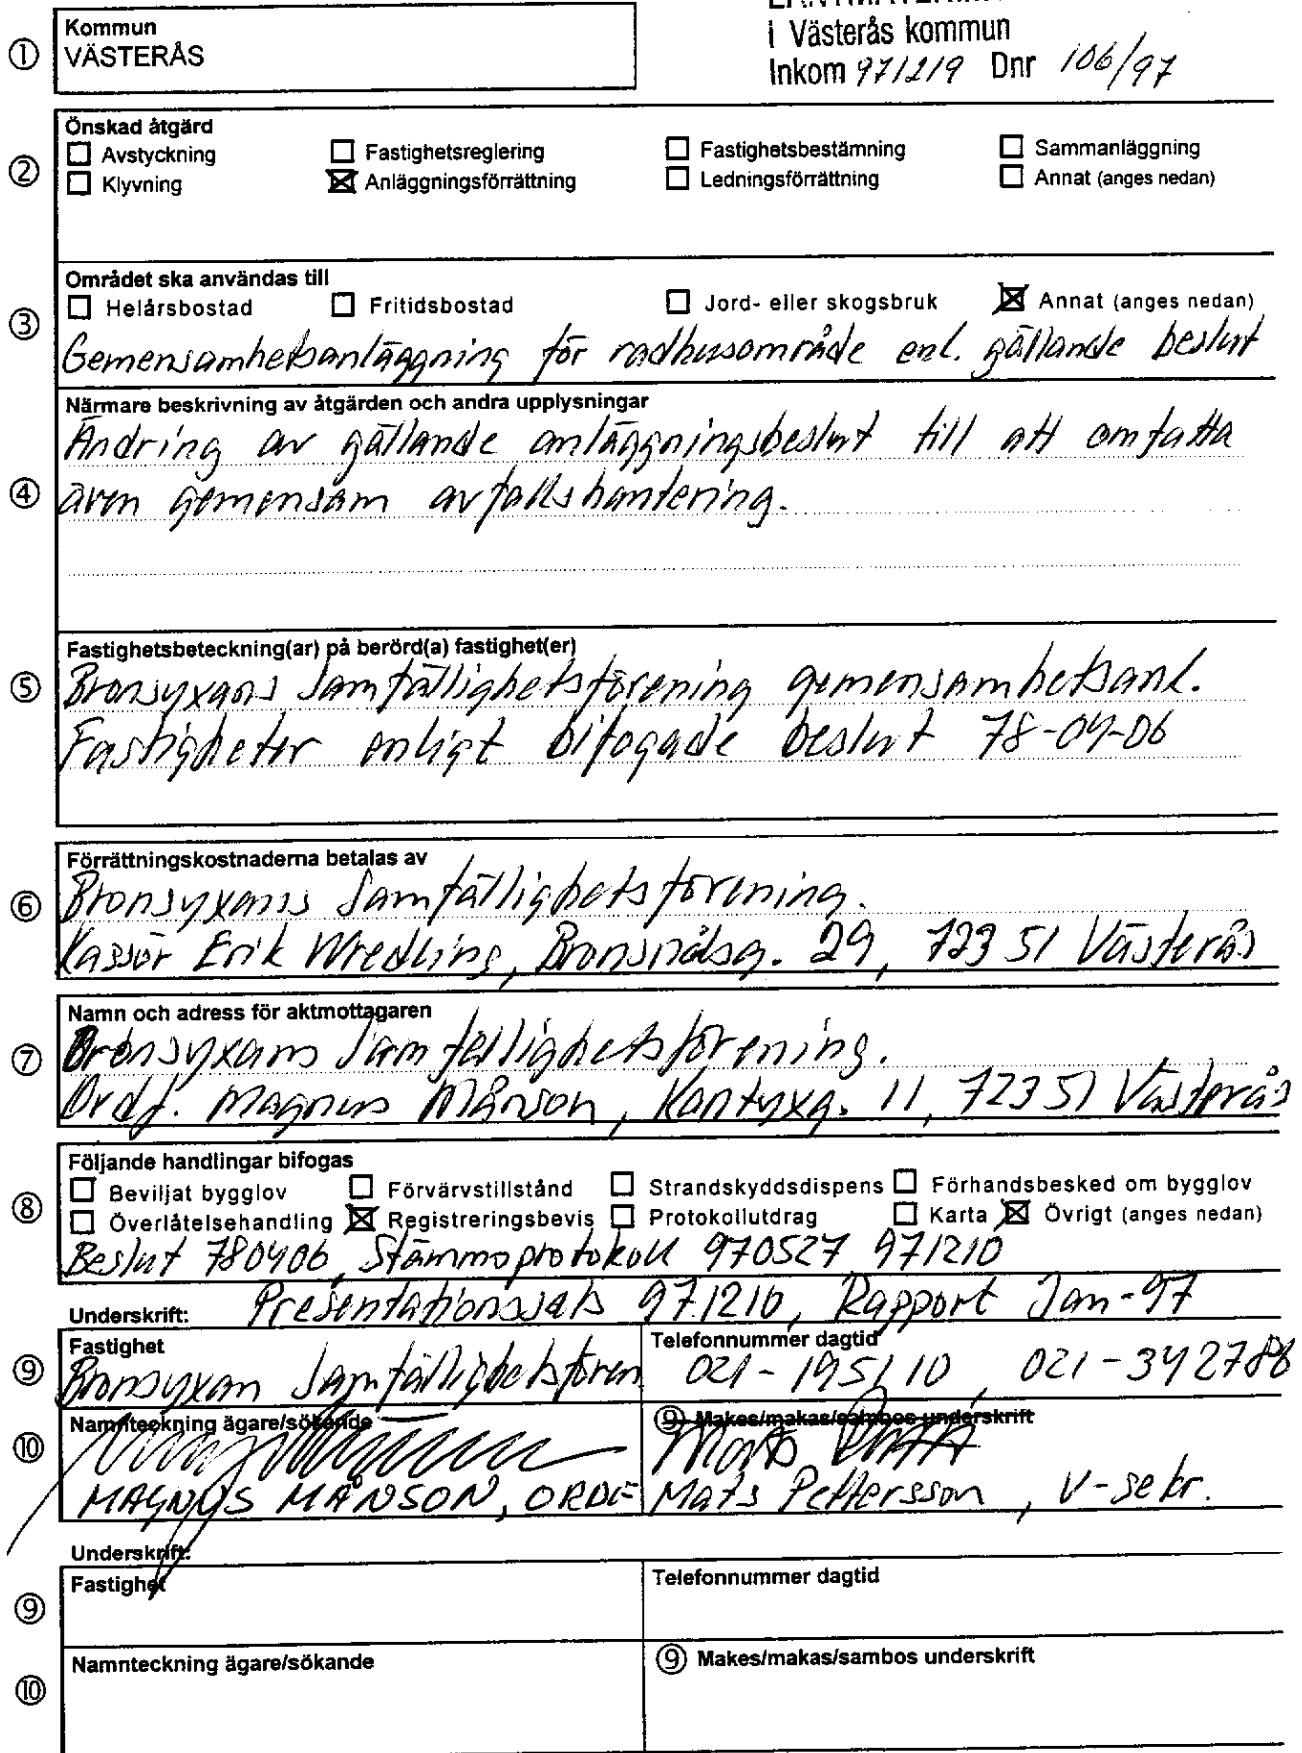 i Västerås kommun
Inkom 971219 Dnr 106/97
① Kommun
VÄSTERÅS
② Önskad åtgärd
☐ Avstyckning ☐ Fastighetsreglering ☐ Fastighetsbestämning ☐ Sammanläggning
☐ Klyvning ☒ Anläggningsförrättning ☐ Ledningsförrättning ☐ Annat (anges nedan)
③ Området ska användas till
☐ Helårsbostad ☐ Fritidsbostad ☐ Jord- eller skogsbruk ☒ Annat (anges nedan)
Gemensamhetsanläggning för radhusområde enl. gällande beslut
④ Närmare beskrivning av åtgärden och andra upplysningar
Ändring av gällande anläggningsbeslut till att omfatta
även gemensam avfallshantering.
⑤ Fastighetsbeteckning(ar) på berörd(a) fastighet(er)
Bronsyxans Samfällighetsförening gemensamhetsanl.
Fastigheter enligt bifogade beslut 78-04-06
⑥ Förrättningskostnaderna betalas av
Bronsyxans Samfällighetsförening.
Kassör Erik Wredling, Bronsnålsg. 29, 723 51 Västerås
⑦ Namn och adress för aktmottagaren
Bronsyxans Samfällighetsförening.
Ordf. Magnus Månson, Kantyxg. 11, 723 51 Västerås
⑧ Följande handlingar bifogas
☐ Beviljat bygglov ☐ Förvärvstillstånd ☐ Strandskyddsdispens ☐ Förhandsbesked om bygglov
☐ Överlåtelsehandling ☒ Registreringsbevis ☐ Protokollutdrag ☐ Karta ☒ Övrigt (anges nedan)
Beslut 780406, Stämmoprotokoll 970527 971210
Presentationssats 971210, Rapport Jan-97
Underskrift:
⑨ Fastighet Telefonnummer dagtid
Bronsyxan Samfällighetsfören 021-195110, 021-342788
⑩ Namnteckning ägare/sökande ⑨ Makes/makas/sambos underskrift
MAGNUS MÅNSON, ORDF Mats Pettersson, V-sekr.
Underskrift:
⑨ Fastighet Telefonnummer dagtid
⑩ Namnteckning ägare/sökande ⑨ Makes/makas/sambos underskrift